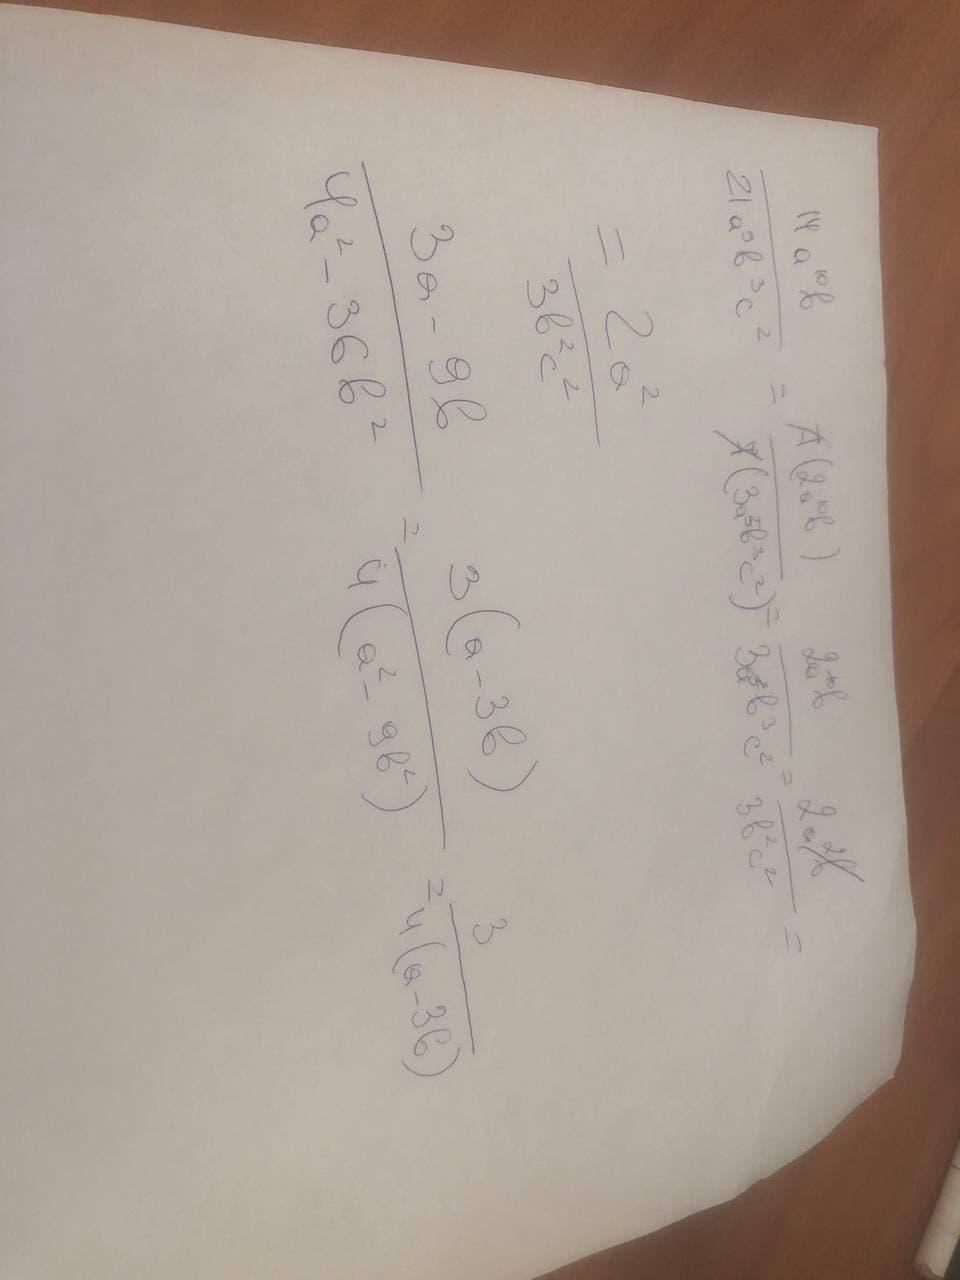 14a¹⁰b / 21a⁵b³c² = 7(2a¹⁰b) / 7(3a⁵b³c²) = 2a¹⁰b / 3a⁵b³c² = 2a²b / 3b²c² =
= 2a² / 3b²c²
3a - 9b / 4a² - 36b² = 3(a - 3b) / 4(a² - 9b²) = 3 / 4(a - 3b)